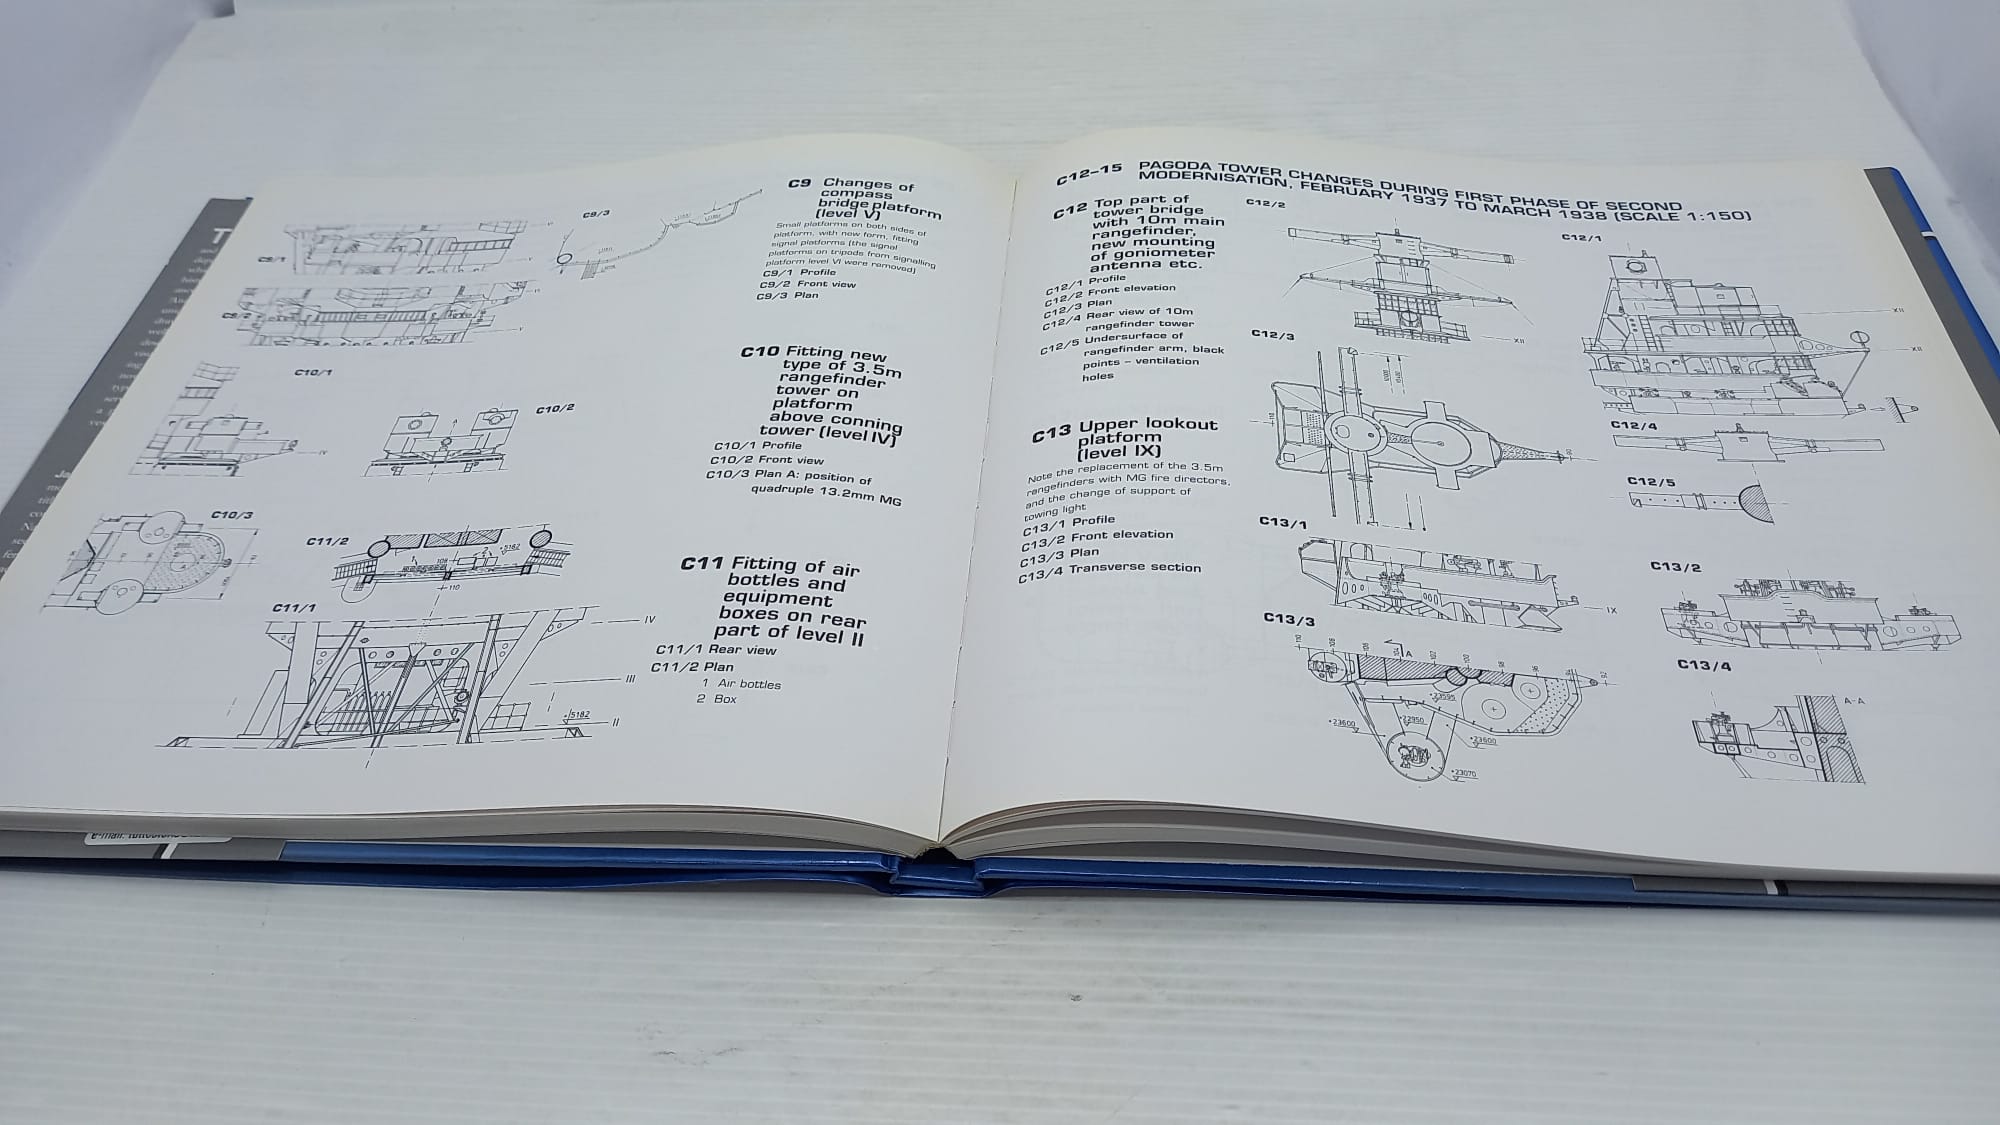 C9 Changes of
compass
bridge platform
(level V)
Small platforms on both sides of
platform, with new form, fitting
signal platforms (the signal
platforms on tripods from signalling
platform level VI were removed)
C9/1 Profile
C9/2 Front view
C9/3 Plan
C9/3
C9/1
C9/2
C10 Fitting new
type of 3.5m
rangefinder
tower on
platform
above conning
tower (level IV)
C10/1 Profile
C10/2 Front view
C10/3 Plan A: position of
quadruple 13.2mm MG
C10/1
C10/2
IV
C10/3
C11 Fitting of air
bottles and
equipment
boxes on rear
part of level II
C11/1 Rear view
C11/2 Plan
1 Air bottles
2 Box
C11/2
1
2
108
5182
110
C11/1
IV
III
5182
II
C12-15 PAGODA TOWER CHANGES DURING FIRST PHASE OF SECOND
MODERNISATION, FEBRUARY 1937 TO MARCH 1938 (SCALE 1:150)
C12 Top part of
tower bridge
with 10m main
rangefinder,
new mounting
of goniometer
antenna etc.
C12/1 Profile
C12/2 Front elevation
C12/3 Plan
C12/4 Rear view of 10m
rangefinder tower
C12/5 Undersurface of
rangefinder arm, black
points – ventilation
holes
C12/2
XII
C12/1
XII
C12/3
C12/4
C12/5
C13 Upper lookout
platform
(level IX)
Note the replacement of the 3.5m
rangefinders with MG fire directors,
and the change of support of
towing light
C13/1 Profile
C13/2 Front elevation
C13/3 Plan
C13/4 Transverse section
C13/1
IX
C13/2
C13/3
110
108
106
104
A
102
100
98
96
+23595
+23600
+22950
+23600
+23070
C13/4
A-A